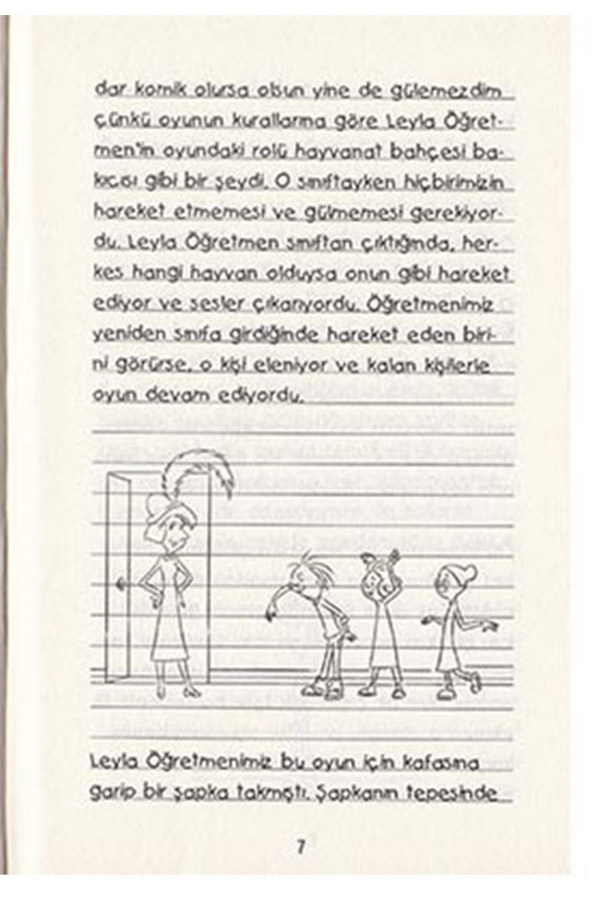 dar komik olursa olsun yine de gülemezdim
çünkü oyunun kurallarına göre Leyla Öğret-
men'in oyundaki rolü hayvanat bahçesi ba-
kıcısı gibi bir şeydi. O sınıftayken hiçbirimizin
hareket etmemesi ve gülmemesi gerekiyor-
du. Leyla Öğretmen sınıftan çıktığında, her-
kes hangi hayvan olduysa onun gibi hareket
ediyor ve sesler çıkarıyordu. Öğretmenimiz
yeniden sınıfa girdiğinde hareket eden biri-
ni görürse, o kişi eleniyor ve kalan kişilerle
oyun devam ediyordu.
Leyla Öğretmenimiz bu oyun için kafasına
garip bir şapka takmıştı. Şapkanın tepesinde
7